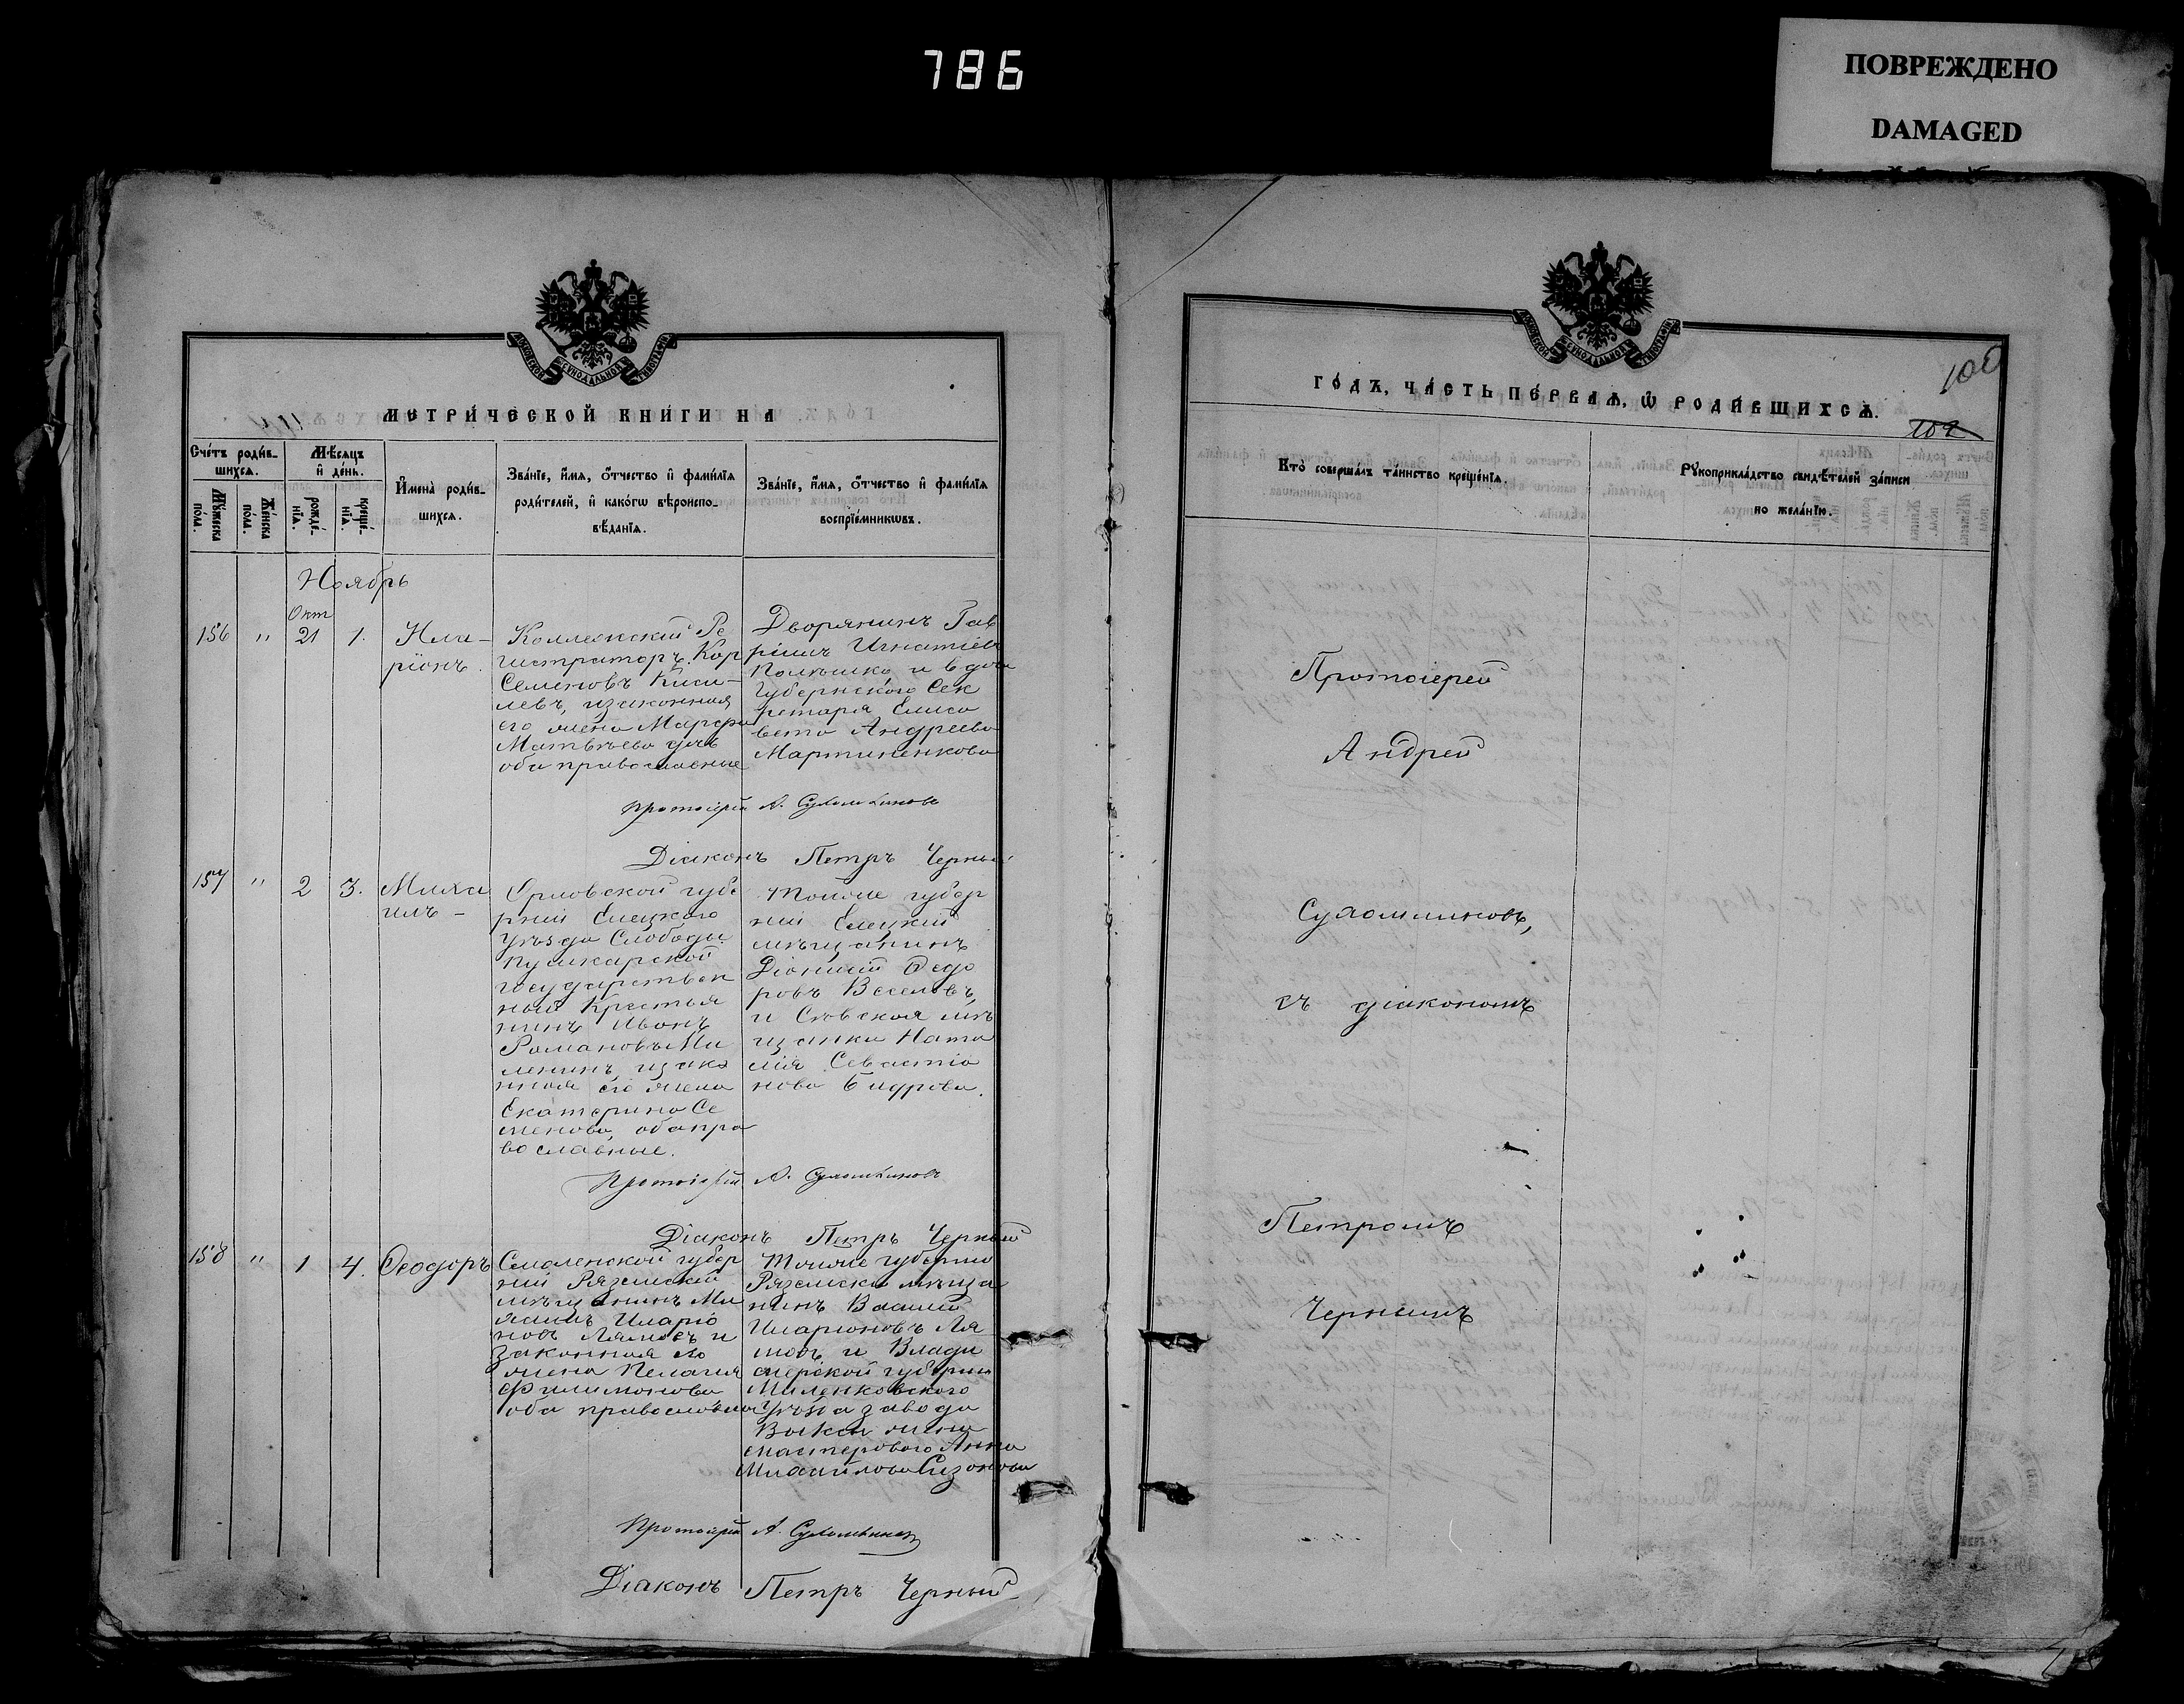 786
ПОВРЕЖДЕНО
DAMAGED
МЕТРИ́ЧЕСКОЙ КНИ́ГИ НА
Сче́тъ роди́в-
шихсѧ.
Мѣ́сяцъ
и҆ де́нь.
Мꙋ́жеска
по́ла.
Же́нска
по́ла.
рожде́-
нїѧ.
креще́-
нїѧ.
И҆мена̀ роди́в-
шихсѧ.
Зва́нїе, и҆́мѧ, ѻ҆́тчество и҆ фами́лїѧ
роди́телей, и҆ како́гѡ вѣроиспо-
вѣ́данїѧ.
Зва́нїе, и҆́мѧ, ѻ҆́тчество и҆ фами́лїѧ
воспрїе́мникѡвъ.
Ноябрь
Окт
156 " 21 1. Ила-
ріонъ.
Коллежскій Ре
гистраторъ. Кар
Семеновъ Кисе-
левъ, и законная
его жена Марфа
Матвѣева
оба православные
Дворянинъ Гав
ріилъ Игнатіев
и вдова
Губернскаго Сек
ретаря Елиса
вета Андреева
Мартиненкова
Протоіерей А. Сухомлиновъ
Діаконъ Петръ Черный
157 " 2 3. Миха
илъ -
Орловской губе
рніи Елецкаго
уѣзда Слободы
Пушкарской
государствен
ный Крестья
нинъ Иванъ
Романовъ Ми
ленинъ, и зако
нная его жена
Екатерина Се
менова, оба пра
вославные.
Тойже губер
ніи Елецкій
мѣщанинъ
Діонисій Ѳедо
ровъ Веселовъ,
и Сѣвская мѣ
щанка Ната
лія Севастіа
нова
Протоіерей А. Сухомлиновъ
Діаконъ Петръ Черный
158 " 1 4. Ѳеодоръ
Смоленской губер
ніи Вяземскій
мѣщанинъ Ми
хаилъ Иларіо
новъ и
законная его
жена Пелагия
Филимонова
оба православные
Тойже губерніи
Вяземскій мѣща
нинъ Василій
Иларіоновъ
и Влади
мірской губерніи
Меленковскаго
Уѣзда завода
Выксы жена
мастероваго Анна
Михайлова Сизонова
Протоіерей А. Сухомлиновъ
Діаконъ Петръ Черный
ГО́ДЪ, ЧА́СТЬ ПЕ́РВАѦ, Ѡ҆ РОДИ́ВШИХСѦ.
100
102
Кто̀ соверша́лъ та́инство креще́нїѧ.
Рꙋкоприкла́дство свидѣ́телей за́писи
по жела́нїю.
Протоіерей
Андрей
Сухомлиновъ,
съ діакономъ
Петромъ
Чернымъ